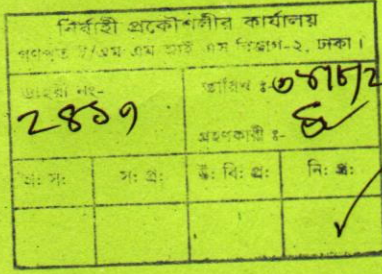 নির্বাহী প্রকৌশলীর কার্যালয়
গণপূর্ত ই/এম এম আই এস বিভাগ-২, ঢাকা।
ডায়রী নং- তারিখ ঃ-
গ্রহণকারী ঃ-
প্রঃ সঃ সঃ প্রঃ উঃ বিঃ প্রঃ নিঃ প্রঃ